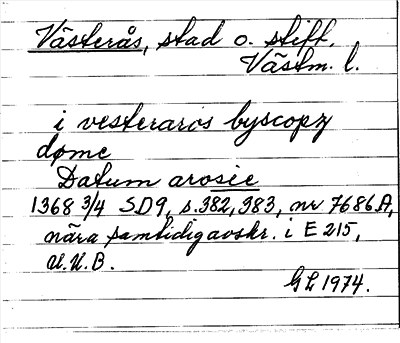 Västerås, stad o. stift.
Västm. l.
i vesteraros byscopz
dømc
Datum arosie
1368 3/4 SD9, s.382, 383, nr 7686A,
nära samtidig avskr. i E 215,
U.U.B.
GL 1974.